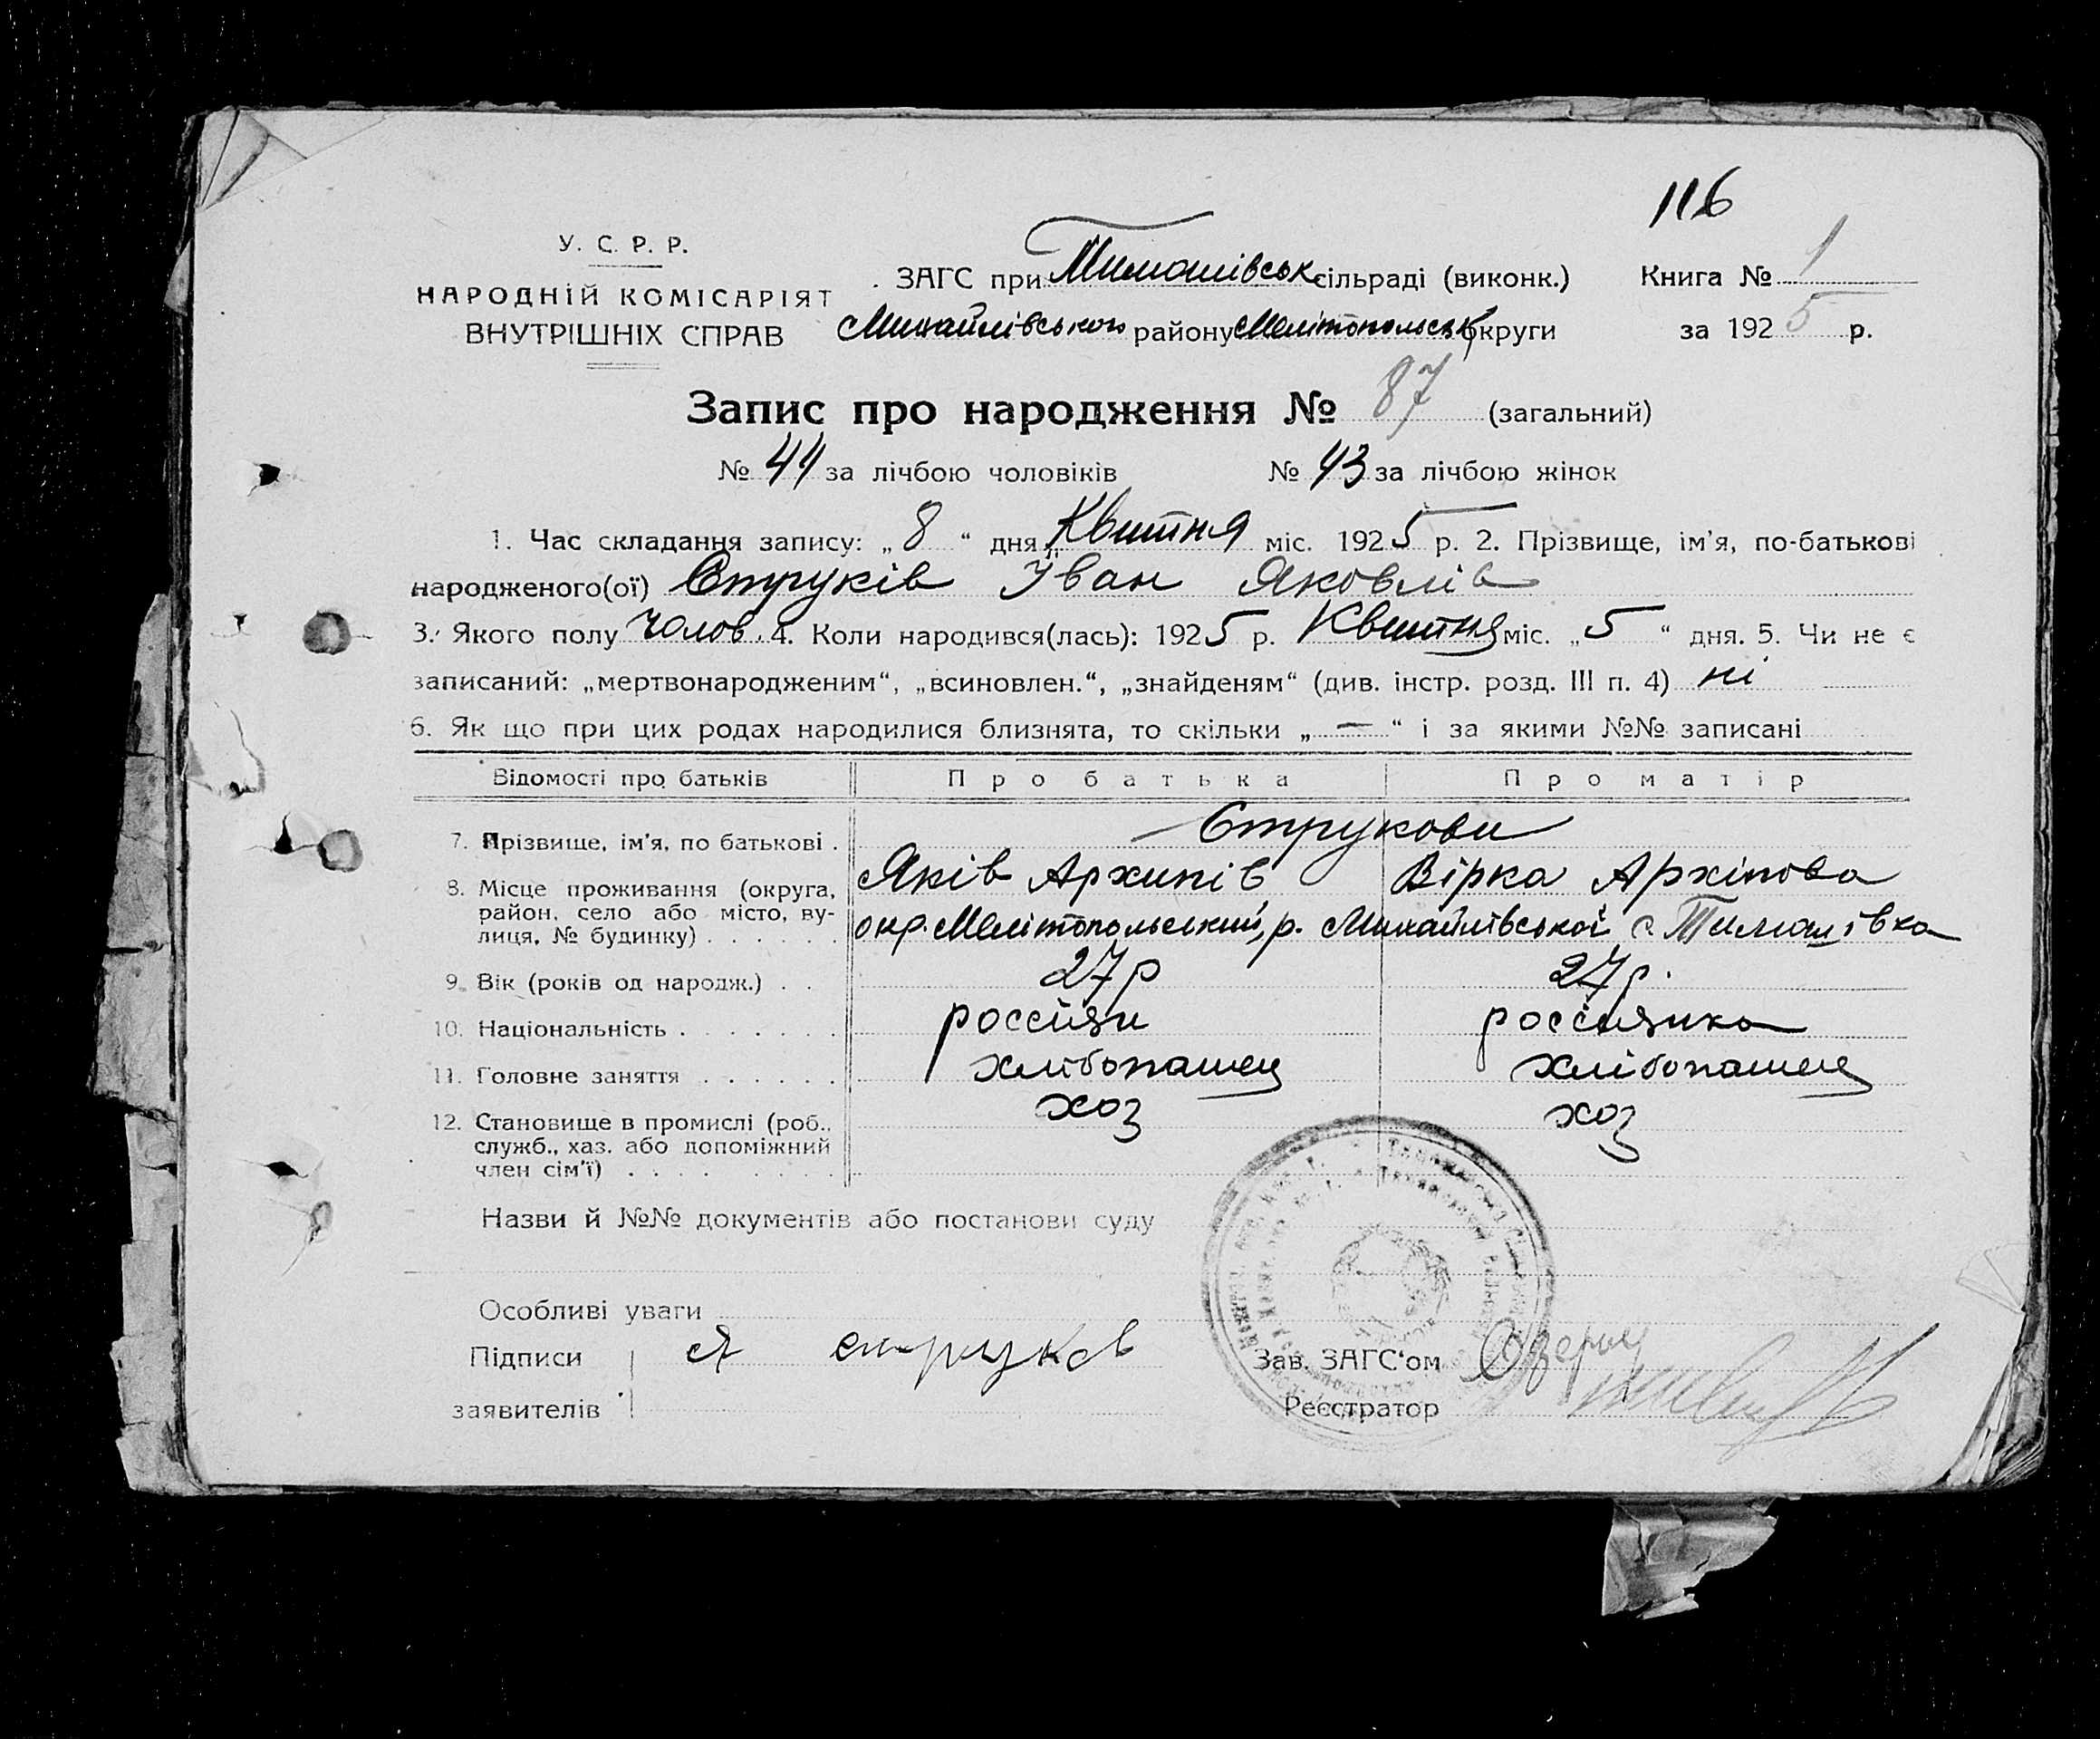 116
У. С. Р. Р.
НАРОДНІЙ КОМІСАРІЯТ
ВНУТРІШНІХ СПРАВ
ЗАГС при Тимошівськ сільраді (виконк.) Книга № 1
Михайлівського району Мелітопольськ округи за 1925 р.
Запис про народження № 87 (загальний)
№ 44 за лічбою чоловіків № 43 за лічбою жінок
1. Час складання запису: „8“ дня „Квитня міс. 1925 р. 2. Прізвище, ім'я, по-батькові
народженого(ої) Струків Іван Яковлів
3. Якого полу чолов. 4. Коли народився(лась): 1925 р. Квитня міс. „5“ дня. 5. Чи не є
записаний: „мертвонародженим“, „всиновлен.“, „знайденям“ (див. інстр. розд. III п. 4) ні
6. Як що при цих родах народилися близнята, то скільки „—“ і за якими №№ записані
Відомості про батьків Про батька Про матір
7. Прізвище, ім'я, по батькові . Струкови
Яків Архипів Вірка Архіпова
8. Місце проживання (округа,
район, село або місто, ву-
лиця, № будинку) . . . . . . окр. Мелітопольський, р. Михайлівської с. Тимашівка
9. Вік (років од народж.) . . 27р 27р.
10. Національність . . . . . . . россияни россиянка
11. Головне заняття . . . . . . хлібопашец хлібопашец
12. Становище в промислі (роб.,
служб., хаз. або допоміжний
член сім'ї) . . . . хоз хоз
Назви й №№ документів або постанови суду
Особливі уваги
Підписи Я струков Зав. ЗАГС'ом
заявителів Реєстратор